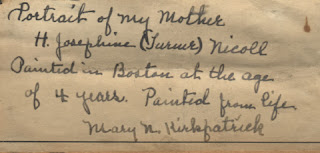 Portrait of my Mother
H. Josephine (Turner) Nicoll
Painted in Boston at the age
of 4 years. Painted from life
Mary N. Kirkpatrick